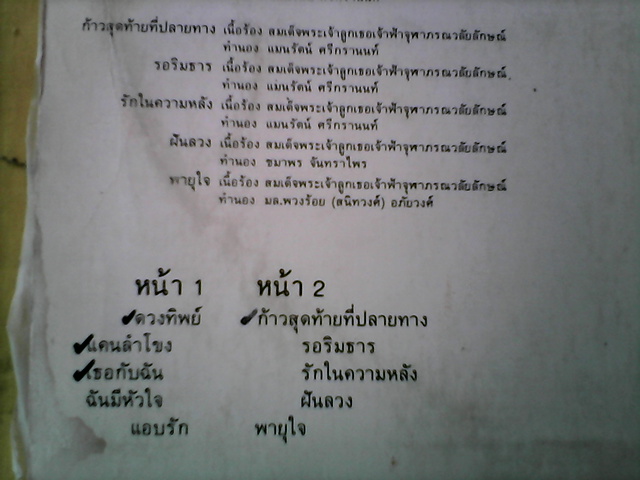 ก้าวสุดท้ายที่ปลายทาง เนื้อร้อง สมเด็จพระเจ้าลูกเธอเจ้าฟ้าจุฬาภรณวลัยลักษณ์
ทำนอง แมนรัตน์ ศรีกรานนท์
รอริมธาร เนื้อร้อง สมเด็จพระเจ้าลูกเธอเจ้าฟ้าจุฬาภรณวลัยลักษณ์
ทำนอง แมนรัตน์ ศรีกรานนท์
รักในความหลัง เนื้อร้อง สมเด็จพระเจ้าลูกเธอเจ้าฟ้าจุฬาภรณวลัยลักษณ์
ทำนอง แมนรัตน์ ศรีกรานนท์
ฝันลวง เนื้อร้อง สมเด็จพระเจ้าลูกเธอเจ้าฟ้าจุฬาภรณวลัยลักษณ์
ทำนอง ชมาพร จันทราไพร
พายุใจ เนื้อร้อง สมเด็จพระเจ้าลูกเธอเจ้าฟ้าจุฬาภรณวลัยลักษณ์
ทำนอง มล.พวงร้อย (สนิทวงศ์) อภัยวงศ์
หน้า 1 หน้า 2
ดวงทิพย์ ก้าวสุดท้ายที่ปลายทาง
แคนลำโขง รอริมธาร
เธอกับฉัน รักในความหลัง
ฉันมีหัวใจ ฝันลวง
แอบรัก พายุใจ